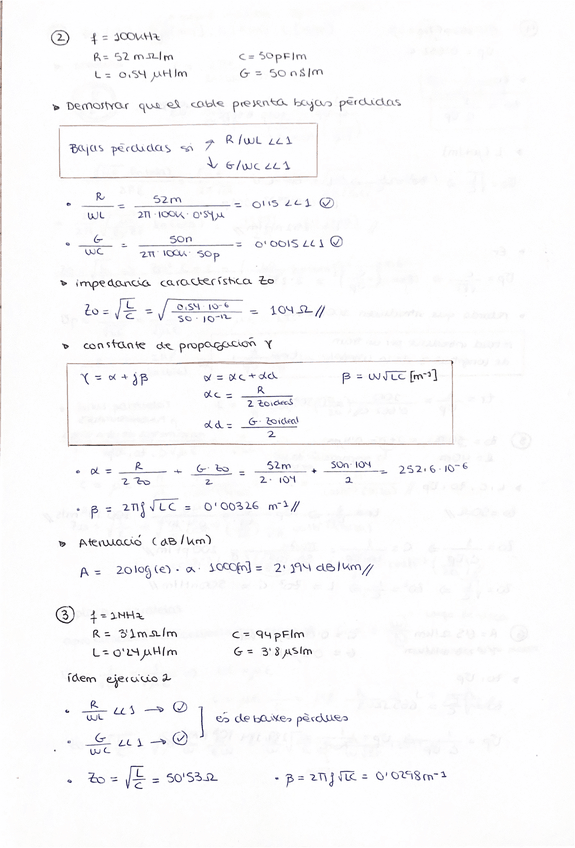 ② f = 100kHz
R = 52 mΩ/m C = 50pF/m
L = 0,54 μH/m G = 50 nS/m
Demostrar que el cable presenta bajas pérdidas
Bajas pérdidas si → R/WL <<1
→ G/WC <<1
• R/WL = 52m / 2π·100k·0'54μ = 0'15 <<1 ✓
• G/WC = 50n / 2π·100k·50p = 0'0015 <<1 ✓
impedancia característica Zo
Zo = √(L/C) = √(0,54·10-6 / 50·10-12) = 104 Ω //
constante de propagación γ
γ = α + jβ α = αc + αd β = W√LC [m-1]
αc = R / 2 Zo ideal
αd = G·Zo ideal / 2
• α = R / 2 Zo + G·Zo / 2 = 52m / 2·104 + 50n·104 / 2 = 252,6·10-6
• β = 2πf√LC = 0'00326 m-1 //
Atenuació (dB/km)
A = 20log(e)·α·1000[m] = 2'194 dB/km //
③ f = 1MHz
R = 3'1mΩ/m C = 94pF/m
L = 0'24μH/m G = 3'8μS/m
ídem ejercicio 2
• R/WL <<1 → ✓
es de baixes pèrdues
• G/WC <<1 → ✓
• Zo = √(L/C) = 50'53Ω • β = 2πf√LC = 0'0298m-1